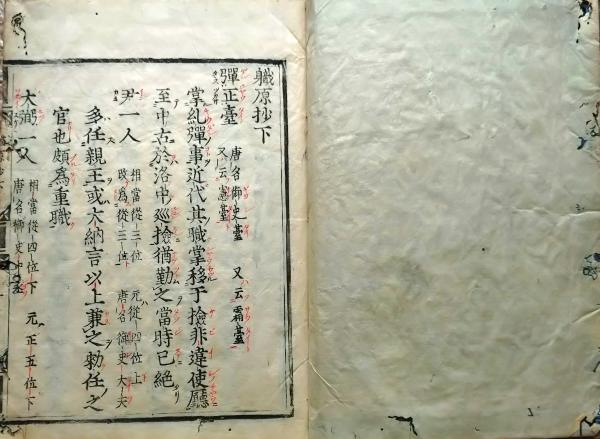 職原抄下
彈正臺 唐名御史臺 又云霜臺
又云憲臺
掌糺彈事近代其職掌移于撿非違使廳
至中古於洛中巡撿猶勤之當時已絶
尹一人 相當從三位 元從四位上
改為從三位 唐名御史大夫
多任親王或大納言以上兼之勅任之
官也頗為重職
大弼一人 相當從四位下 元正五位下
唐名御史中丞